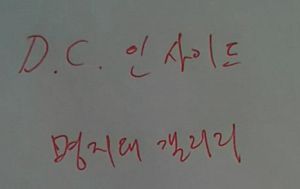 D.C. 인사이드
명지대 갤러리